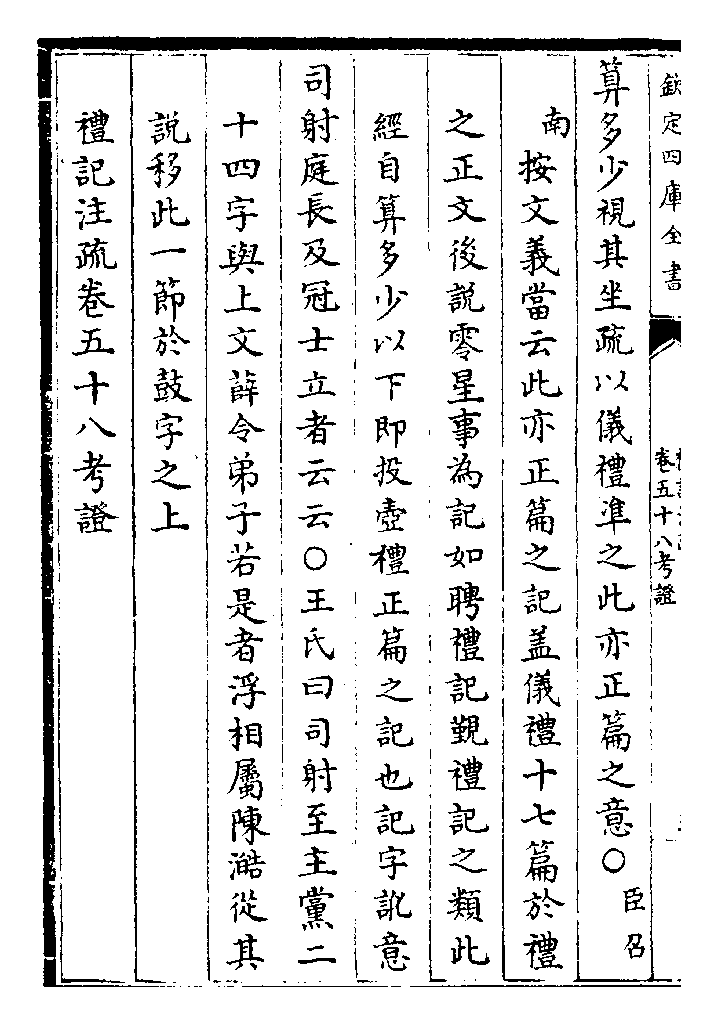 欽定四庫全書
卷五十八考證
算多少視其坐疏以儀禮準之此亦正篇之意○臣召
南按文義當云此亦正篇之記盖儀禮十七篇於禮
之正文後説零星事為記如聘禮記覲禮記之類此
經自算多少以下即投壺禮正篇之記也記字訛意
司射庭長及冠士立者云云○王氏曰司射至主黨二
十四字與上文薛令弟子若是者浮相屬陳澔從其
説移此一節於鼓字之上
禮記注疏卷五十八考證